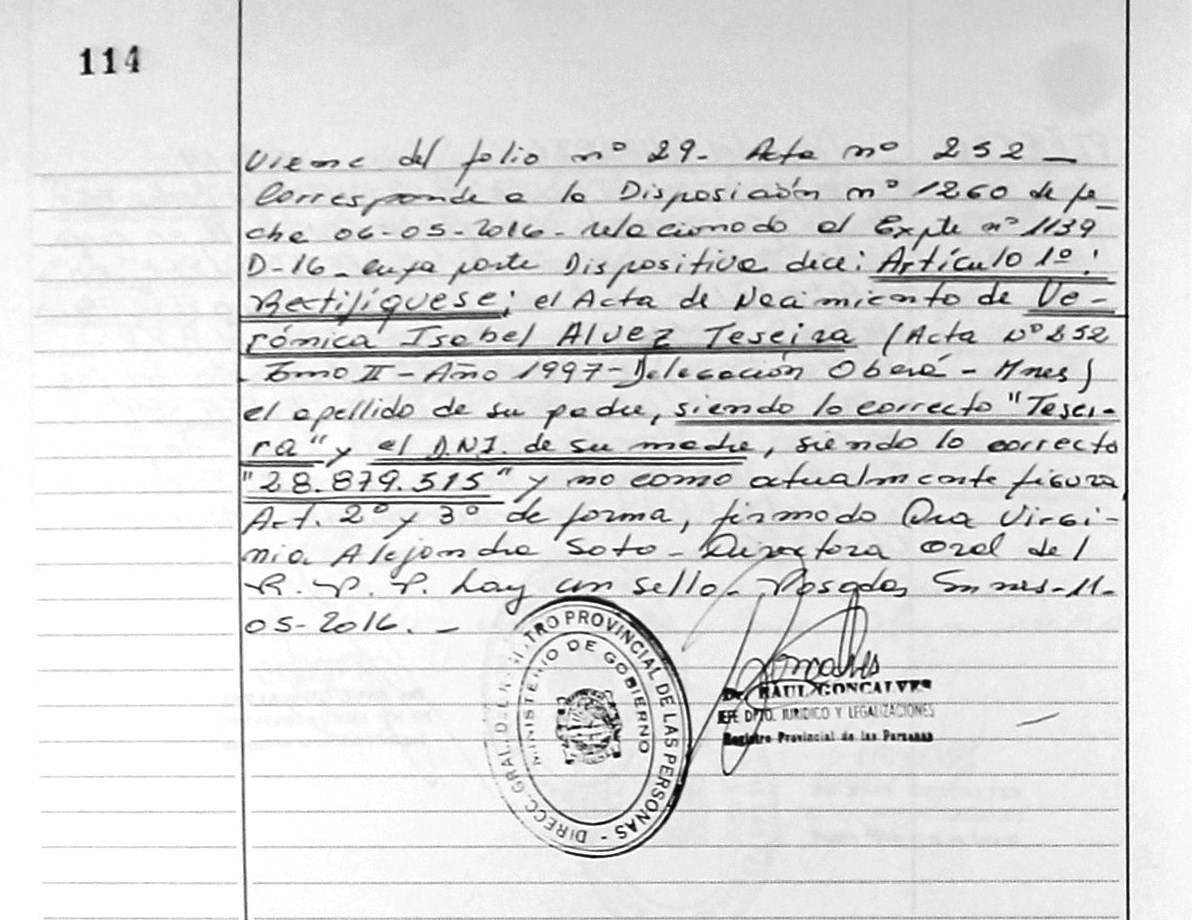 114
Viene del folio nº 29- Acta nº 252 —
Corresponde a la Disposición nº 1260 de fe-
cha 06-05-2016- relacionado al Expte nº 1139
D-16- cuya parte Dispositiva dice: Artículo 1º:
Rectifíquese; el Acta de Nacimiento de Ve-
rónica Isabel Alvez Teseira (Acta Nº 252
- Tomo II - Año 1997- Delegación Oberá - Mnes)
el apellido de su padre, siendo lo correcto "Tesei-
ra" y el D.N.I. de su madre, siendo lo correcto
"28.879.515" y no como actualmente figura,
Art. 2º y 3º de forma, firmado Dra Virgi-
nia Alejandra Soto - Directora Gral del
R. P. P. hay un sello - Posadas, Mnes - 11-
05-2016. —
DIRECC. GRAL. DEL REGISTRO PROVINCIAL DE LAS PERSONAS -
MINISTERIO DE GOBIERNO
Goncalves
Dr. RAUL GONCALVES
JEFE DPTO. JURIDICO Y LEGALIZACIONES
Registro Provincial de las Personas